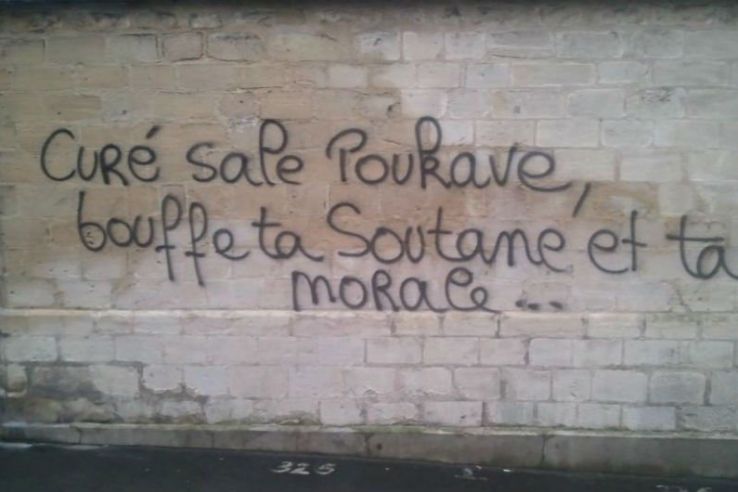 Curé sale Poukave,
bouffe ta Soutane et ta
morale...
325